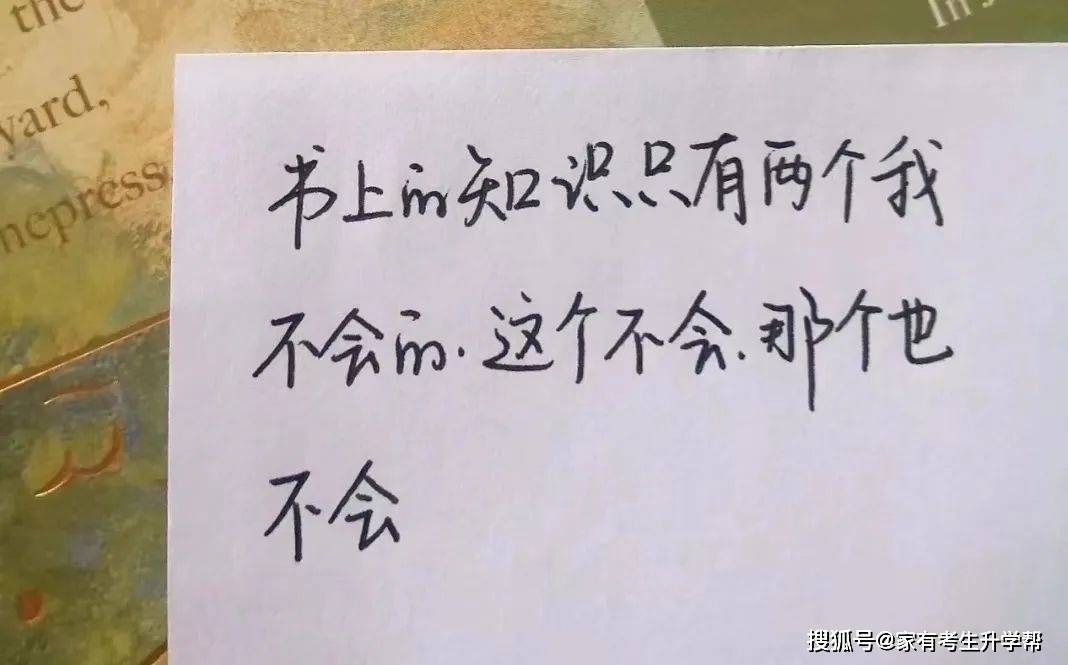 the
yard,
press
In
书上的知识只有两个我
不会的.这个不会.那个也
不会
搜狐号@家有考生升学帮